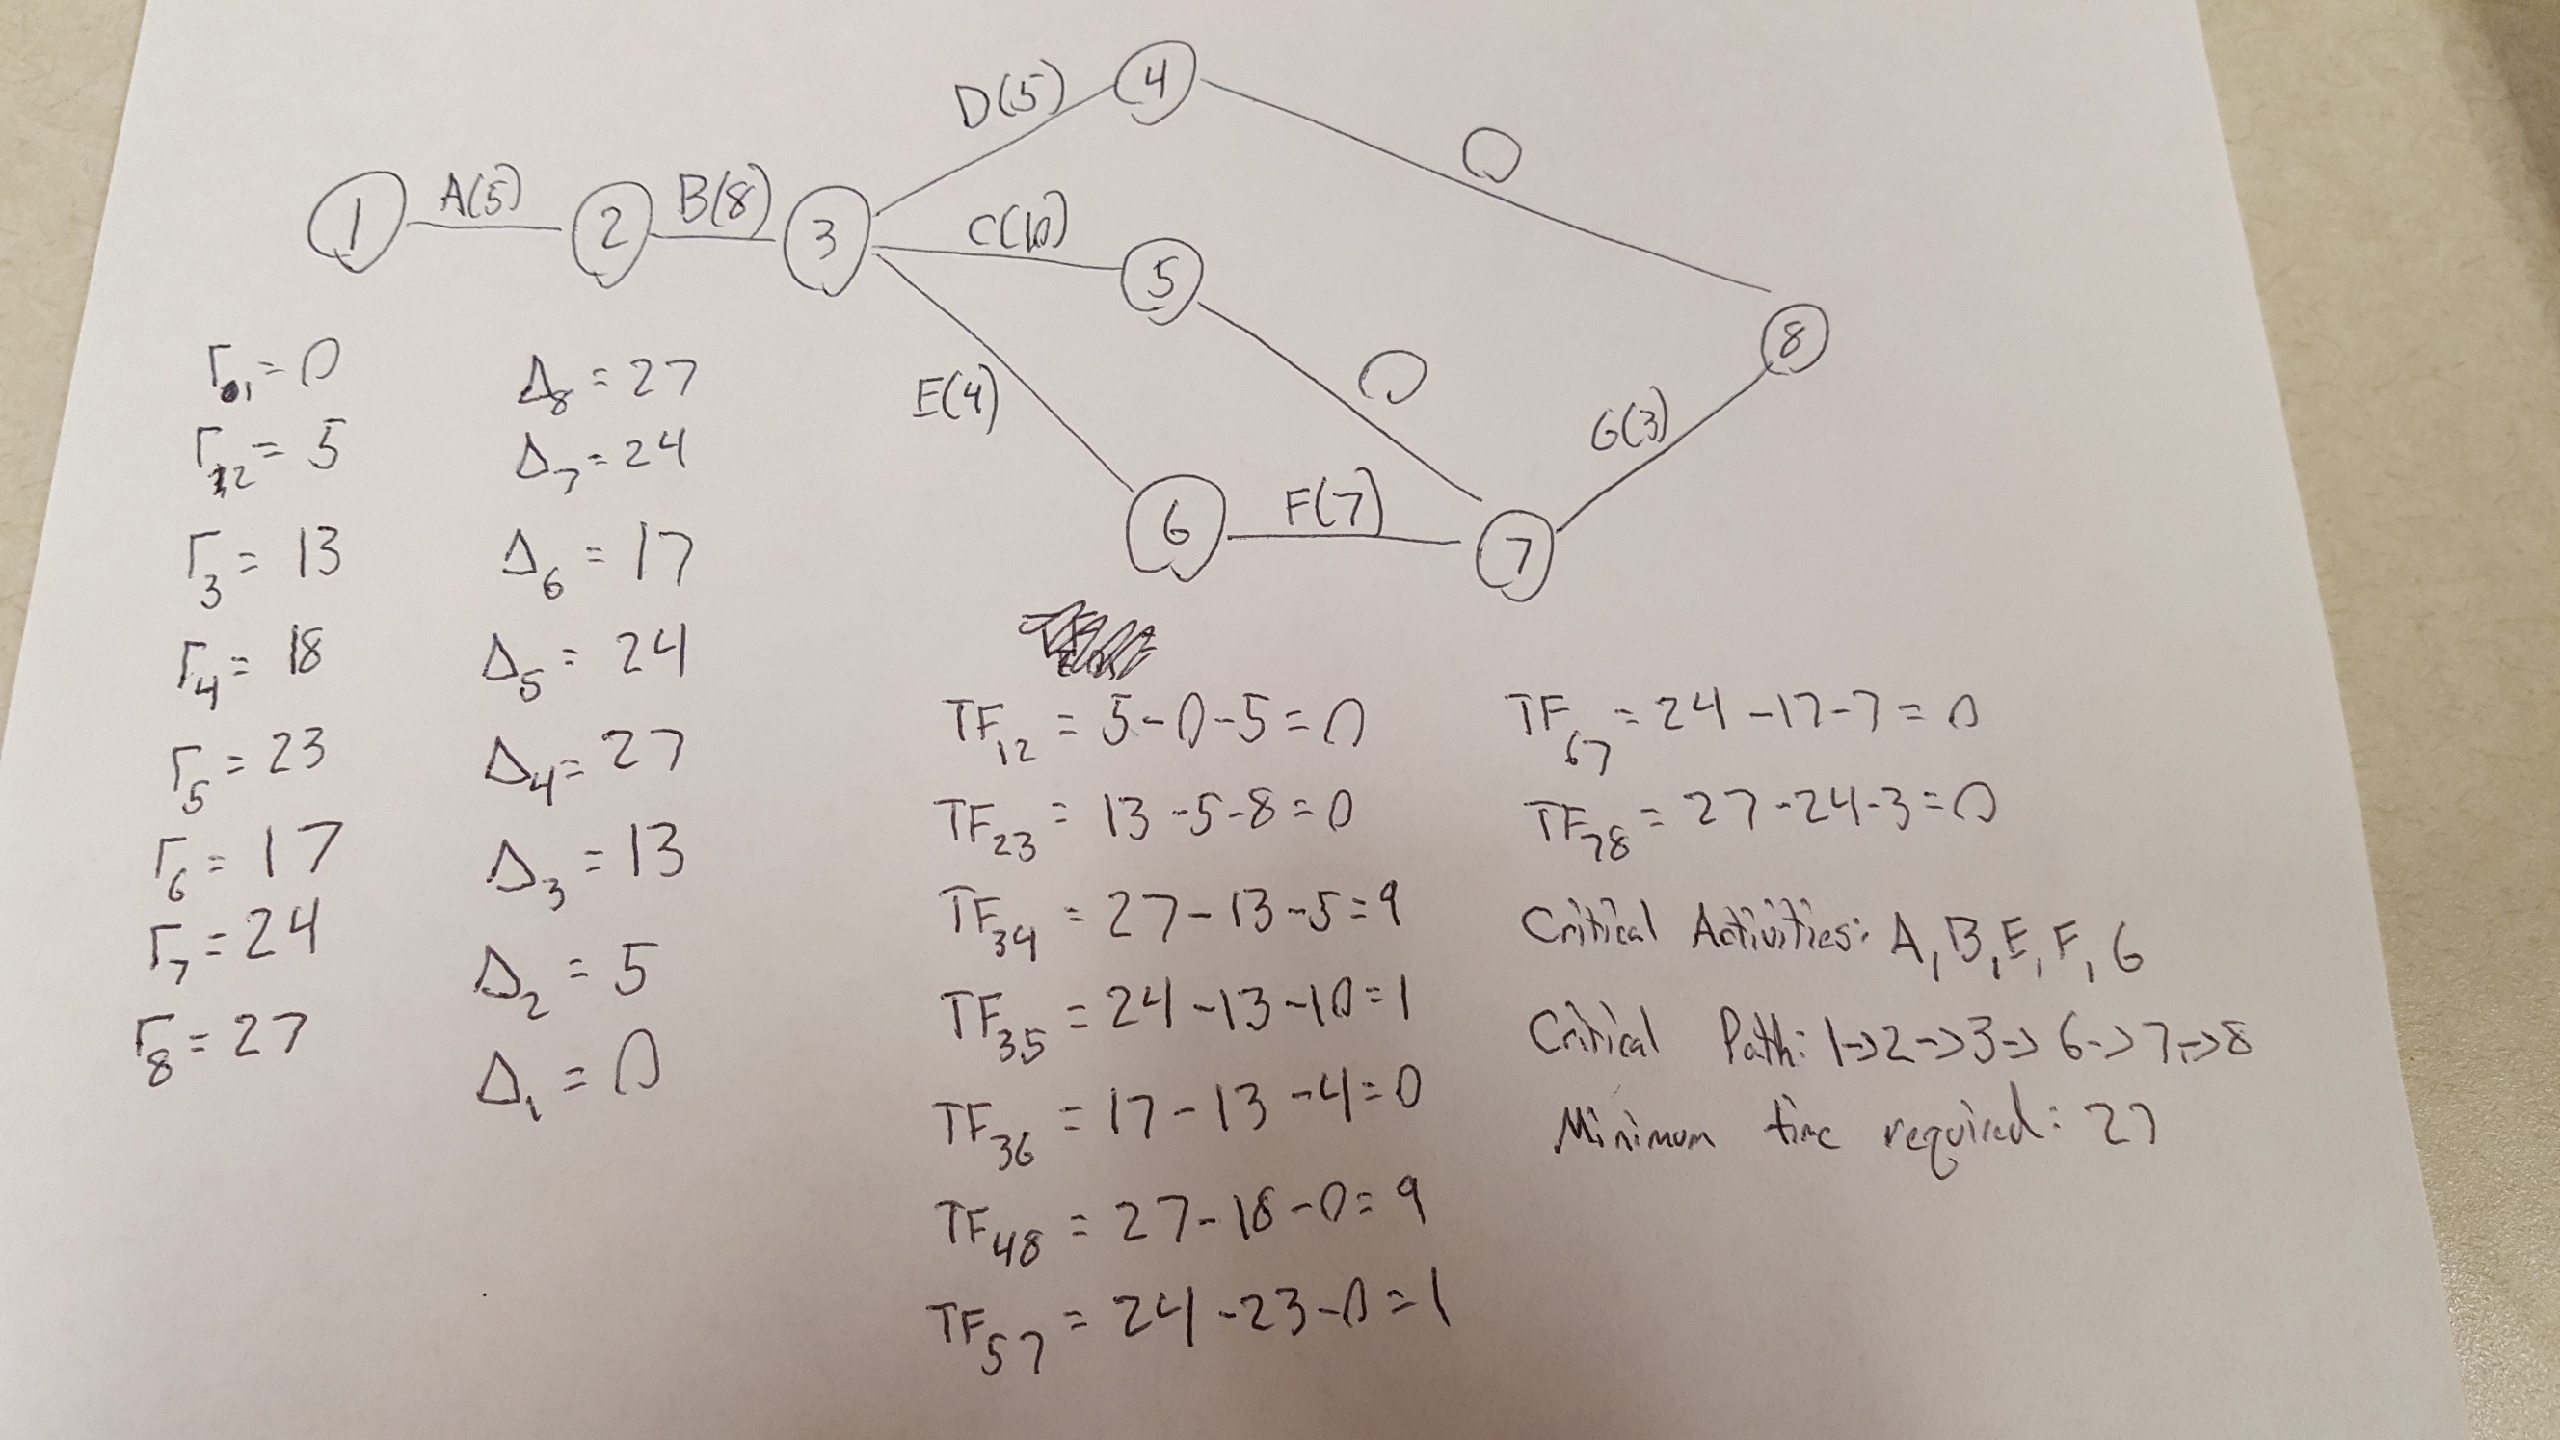 D(5) 4
0
1 A(5) 2 B(8) 3 C(10) 5
8
E(4) 0 G(3)
6 F(7) 7
Γ1 = 0
Γ2 = 5
Γ3 = 13
Γ4 = 18
Γ5 = 23
Γ6 = 17
Γ7 = 24
Γ8 = 27
Δ8 = 27
Δ7 = 24
Δ6 = 17
Δ5 = 24
Δ4 = 27
Δ3 = 13
Δ2 = 5
Δ1 = 0
TF12 = 5-0-5=0
TF23 = 13-5-8=0
TF34 = 27-13-5=9
TF35 = 24-13-10=1
TF36 = 17-13-4=0
TF48 = 27-18-0=9
TF57 = 24-23-0=1
TF67 = 24-17-7=0
TF78 = 27-24-3=0
Critical Activities: A, B, E, F, G
Critical Path: 1→2→3→6→7→8
Minimum time required: 27